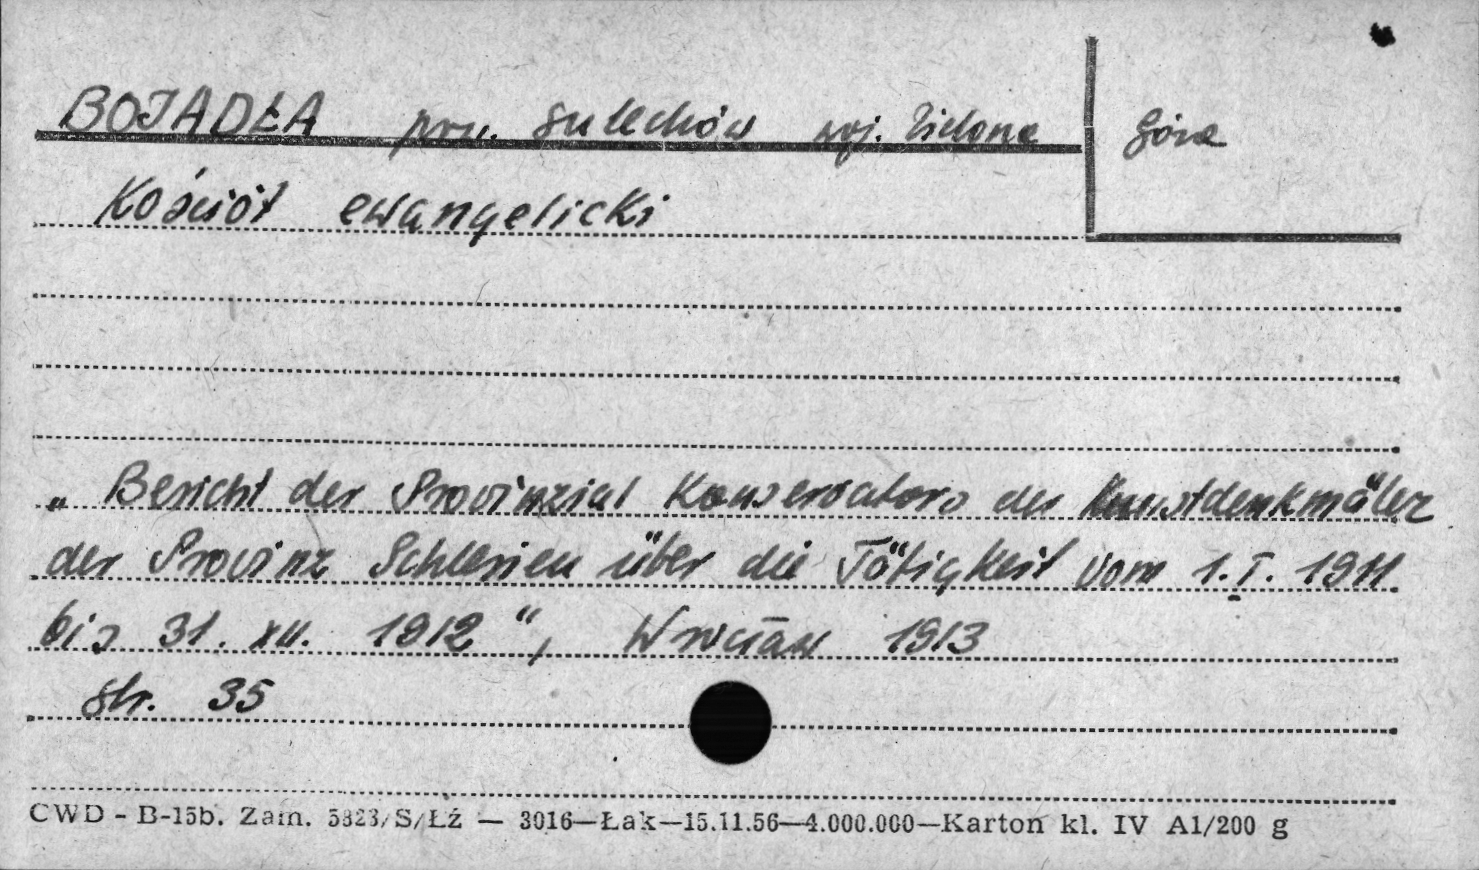 BOJADŁA pow. Sulechów woj. Zielona Góra
Kościół ewangelicki
„Bericht der Provinzial Konservators der Kunstdenkmäler
der Provinz Schlesien über die Tätigkeit vom 1. I. 1911
bis 31. XII. 1912", Wrocław 1913
str. 35
CWD - B-15b. Zam. 5823/S/Łź — 3016—Łak—15.11.56—4.000.000—Karton kl. IV A1/200 g